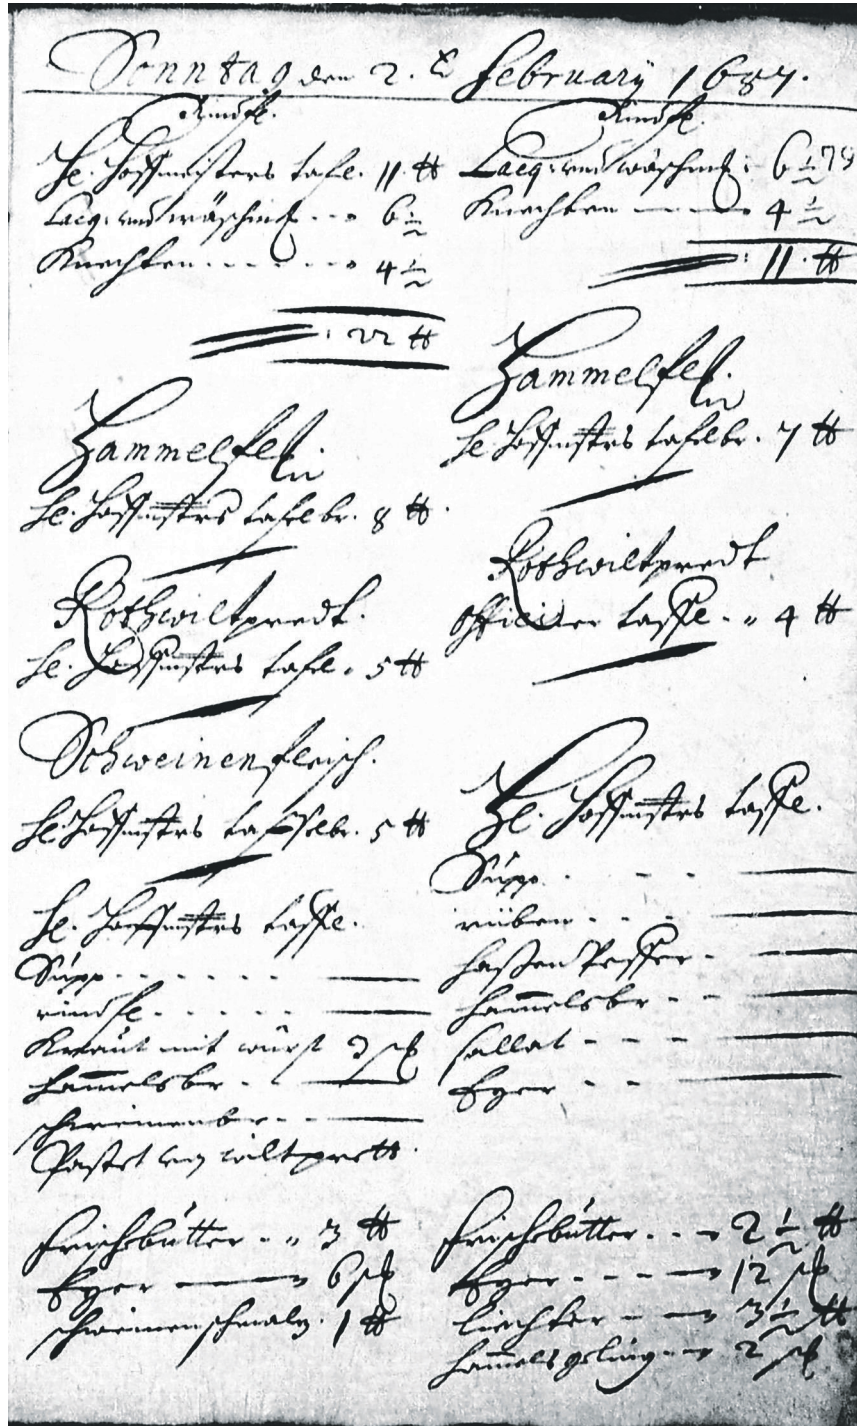 Sonntag den 2. February 1687.
Rindfl.
Hl. Hoffmeisters tafl. 11 ℔
Laeq. und wäschmd. - - 6 ½
Knechten - - - - - 4 ½
: 22 ℔
Hammelfl.
Hl. Hoffmstrs tafelbr. 8 ℔.
Rothwiltpredt.
Hl. Hoffmstrs tafel. 5 ℔
Schweinenfleisch.
Hl. Hoffmstrs taffelbr. 5 ℔
Hl. Hoffmstrs taffl.
Süpp - - - - - -
rindfl. - - - -
Kraut mit würst 3 st
ham̄elsbr - -
schweinenbr - -
Pastet von wiltprett.
frischbütter - „ 3 ℔
Eyer 6 st
schweinenschmalz. 1 ℔
Rindfl.
Laeq. und wäschmd: 6 ½
79
Knechten 4 ½
: 11 ℔
Hammelfl.
Hl. Hoffmstrs tafelbr. 7 ℔
Rothwiltpredt
Officier taffl - „ 4 ℔
Hl. Hoffmstrs taffl.
Süpp - - -
rüben - - -
haßen Pfeffer -
ham̄elsbr - -
sallat - - - -
Eyer - -
frischbütter - - - 2 ½ ℔
Eyer - - - - 12 st
liechter - 3 ½ ℔
ham̄elsgeling - 2 st